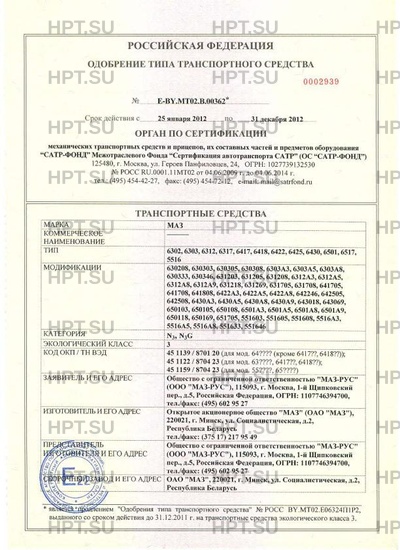 НРТ.SU НРТ.SU НРТ.SU
РОССИЙСКАЯ ФЕДЕРАЦИЯ
ОДОБРЕНИЕ ТИПА ТРАНСПОРТНОГО СРЕДСТВА
0002939
№ E-BY.MT02.B.00362*
Срок действия с 25 января 2012 по 31 декабря 2012
ОРГАН ПО СЕРТИФИКАЦИИ
механических транспортных средств и прицепов, их составных частей и предметов оборудования
"САТР-ФОНД" Межотраслевого Фонда "Сертификация автотранспорта САТР" (ОС "САТР-ФОНД")
125480, г. Москва, ул. Героев Панфиловцев, 24, ОГРН: 1027739132530
№ РОСС RU.0001.11МТ02 от 04.06.2009 г. до 04.06.2014 г.
тел.: (495) 454-42-27, факс: (495) 454-72-12, e-mail: mail@satrfond.ru
ТРАНСПОРТНЫЕ СРЕДСТВА
МАРКА МАЗ
КОММЕРЧЕСКОЕ
НАИМЕНОВАНИЕ
ТИП 6302, 6303, 6312, 6317, 6417, 6418, 6422, 6425, 6430, 6501, 6517,
5516
МОДИФИКАЦИИ 630208, 630303, 630305, 630308, 6303A3, 6303A5, 6303A8,
6312A8, 6312A9, 631218, 631269, 631705, 631708, 641705,
641708, 641808, 6422A3, 6422A5, 6422A8, 642246, 642505,
642508, 6430A3, 6430A5, 6430A8, 6430A9, 643018, 643069,
650103, 650105, 650108, 6501A3, 6501A5, 6501A8, 6501A9,
650118, 650169, 651705, 551603, 551605, 551608, 5516A3,
5516A5, 5516A8, 551633, 551646
КАТЕГОРИЯ N₃, N₃G
ЭКОЛОГИЧЕСКИЙ КЛАСС 3
КОД ОКП / ТН ВЭД 45 1139 / 8701 20 (для мод. 64???? (кроме 6417??, 6418??);
45 1122 / 8704 23 (для мод. 63????, 6417??, 6418??);
45 1159 / 8704 23 (для мод. 55????, 65????)
ЗАЯВИТЕЛЬ И ЕГО АДРЕС Общество с ограниченной ответственностью "МАЗ-РУС"
(ООО "МАЗ-РУС"), 115093, г. Москва, 1-й Щипковский
пер., д.5, Российская Федерация, ОГРН: 1107746394700,
тел./факс: (495) 602 95 27
ИЗГОТОВИТЕЛЬ И ЕГО АДРЕС Открытое акционерное общество "МАЗ" (ОАО "МАЗ"),
220021, г. Минск, ул. Социалистическая, д.2,
Республика Беларусь
тел./факс: (375 17) 217 95 49
ПРЕДСТАВИТЕЛЬ Общество с ограниченной ответственностью "МАЗ-РУС"
ИЗГОТОВИТЕЛЯ И ЕГО АДРЕС (ООО "МАЗ-РУС"), 115093, г. Москва, 1-й Щипковский
пер., д.5, Российская Федерация, ОГРН: 1107746394700,
тел./факс: (495) 602 95 27
СБОРОЧНЫЙ ЗАВОД И ЕГО АДРЕС ОАО "МАЗ", 220021, г. Минск, ул. Социалистическая, д.2,
Республика Беларусь
* является продлением "Одобрения типа транспортного средства" № РОСС BY.MT02.E06324П1Р2,
выданного со сроком действия до 31.12.2011 г. на транспортные средства экологического класса 3.